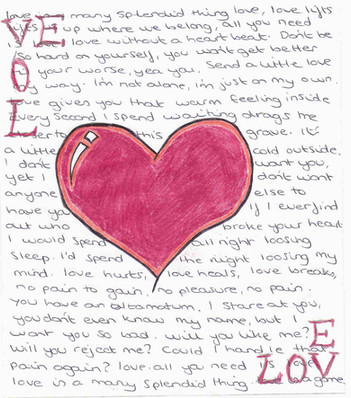 love is a many splendid thing love, love lifts
us up where we belong, all you need
love without a heart beat. Don't be
so hard on yourself, you won't get better
your worse, yea you. Send a little love
my way. I'm not alone, i'm just on my own.
love gives you that warm feeling inside
every second I spend waiting drags me
closer to this grave. It's
a little cold outside.
I don't want you,
yet I don't want
anyone else to
have you If I ever find
out who broke your heart
I would spend all night loosing
sleep. I'd spend the night loosing my
mind. love hurts, love heals, love breaks,
no pain to gain, no pleasure, no pain.
you have an ultamatum. I stare at you,
you don't even know my name, but I
want you so bad. will you like me?
will you reject me? Could I handle that
pain again? love. all you need is love
love is a many splendid thing. gone.
LOVE
LOVE